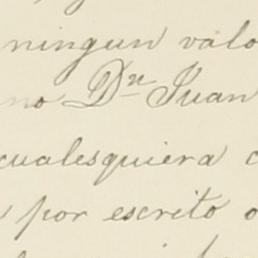 ningun valo
no Dn Juan
cualesquiera c
por escrito o